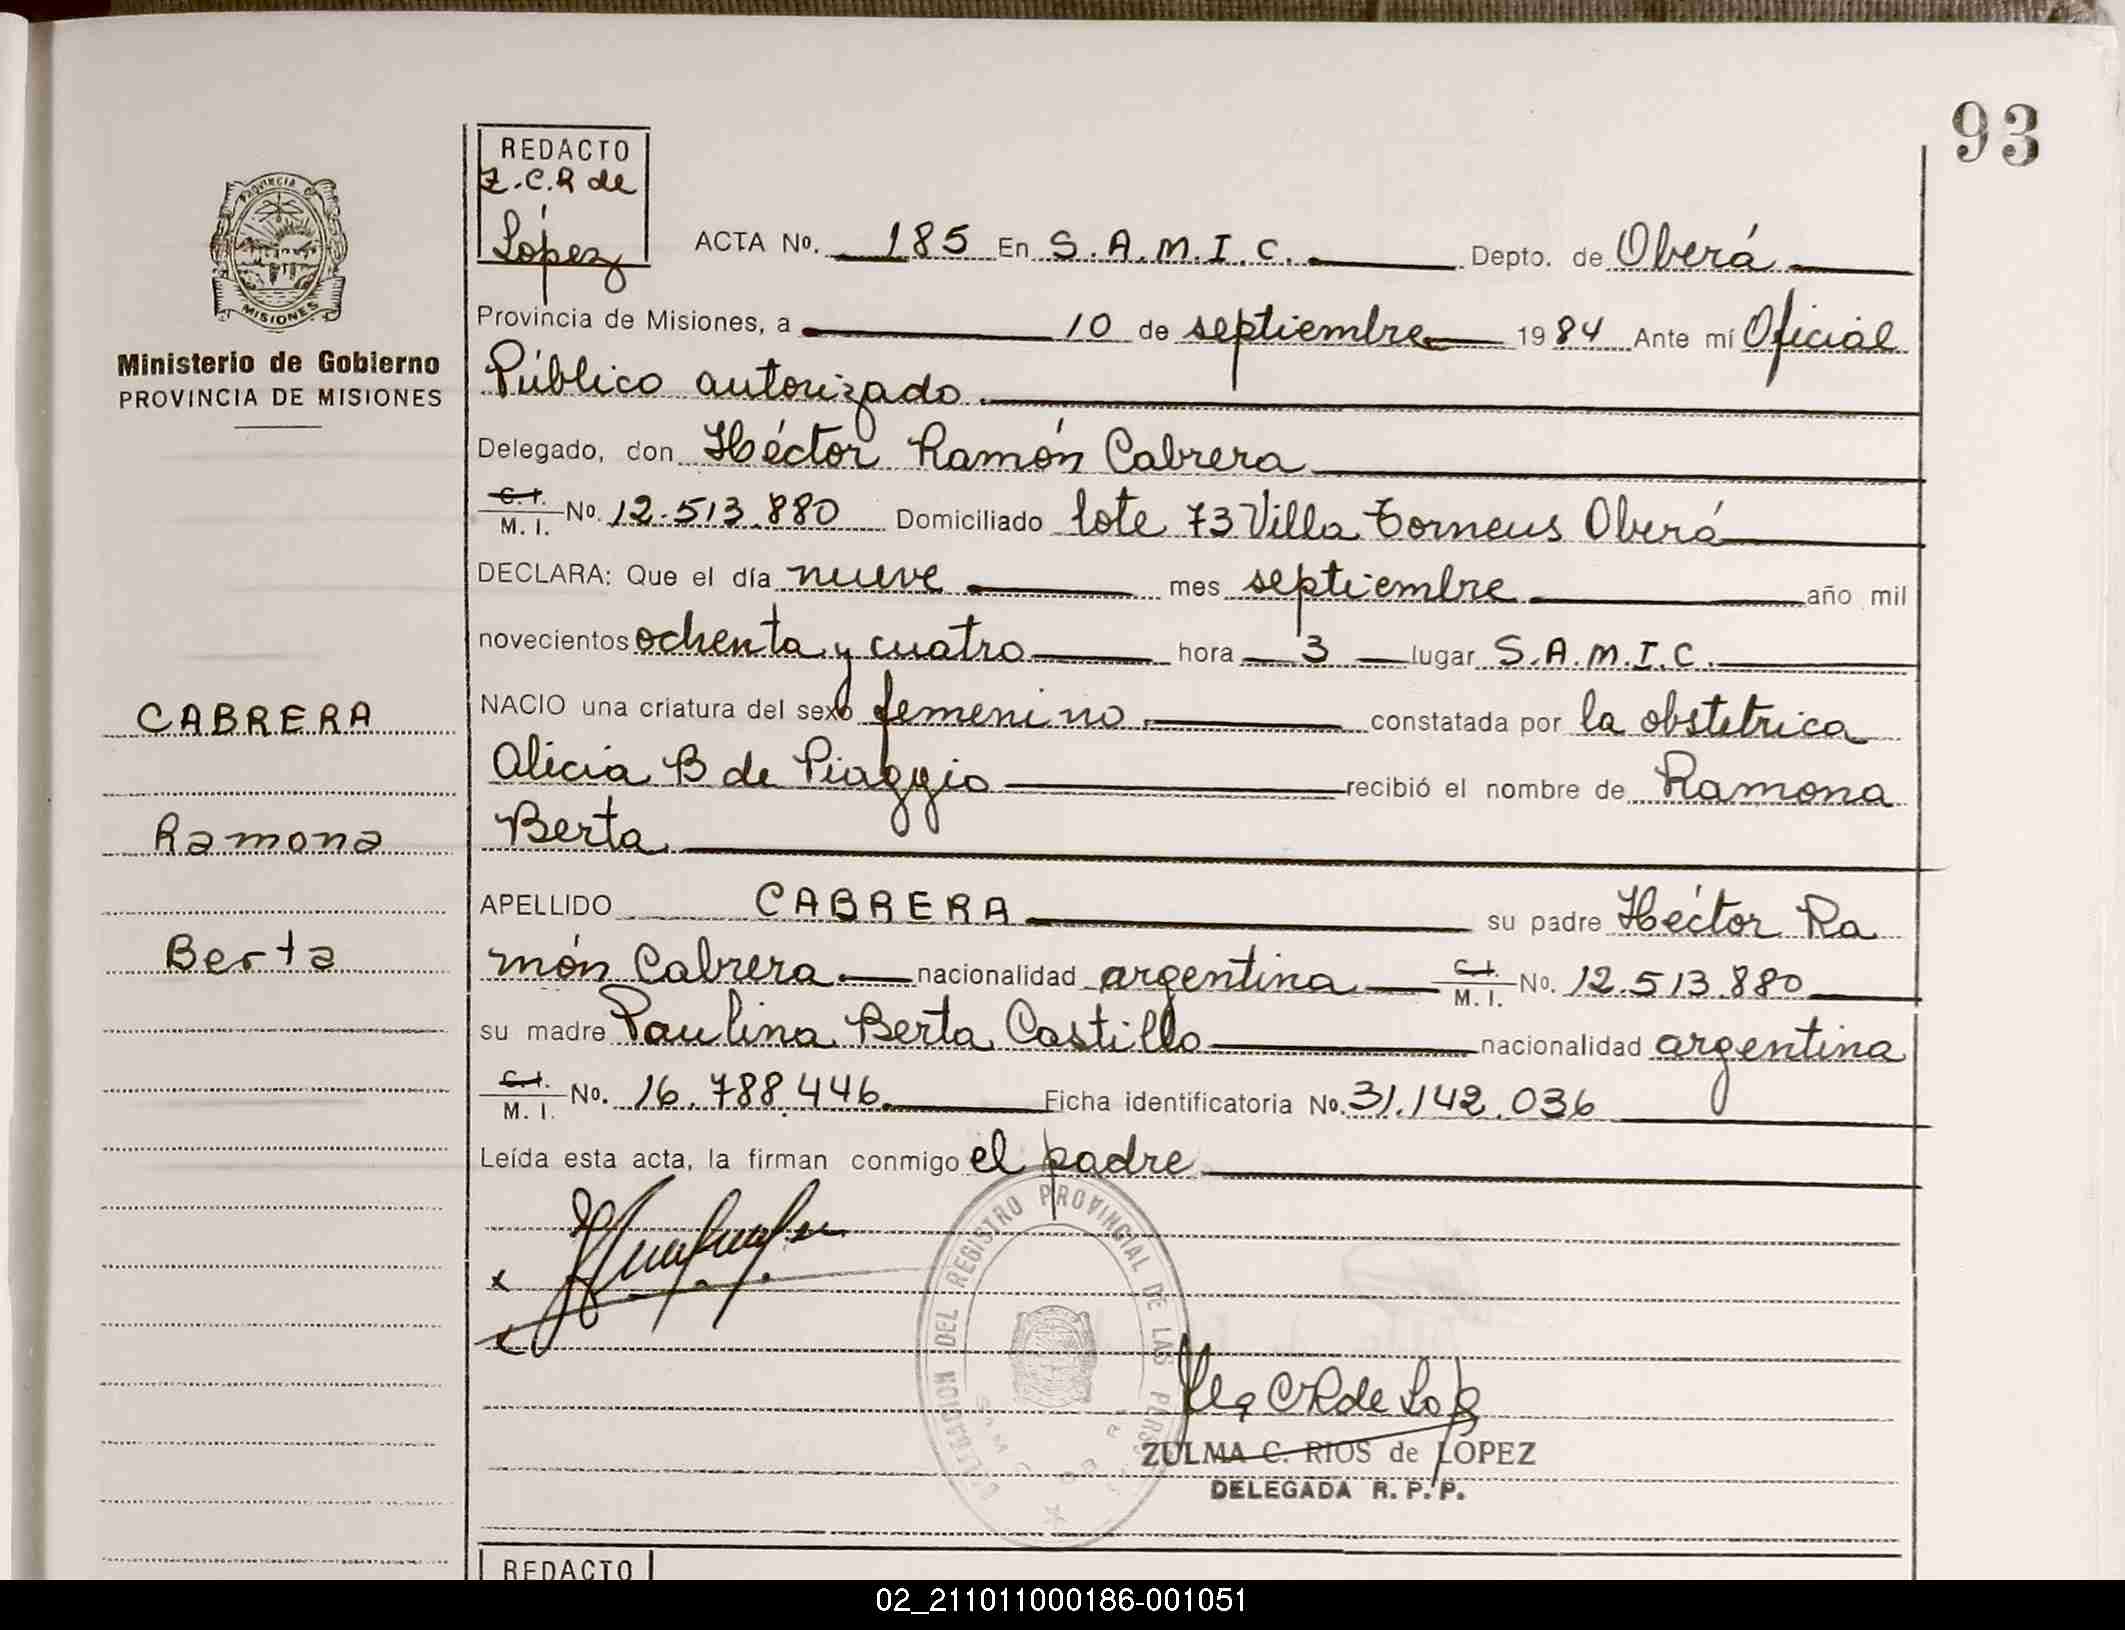 93
REDACTO
Z.C.R de
López
ACTA No. 185 En S.A.M.I.C. Depto. de Oberá
Provincia de Misiones, a 10 de septiembre 1984 Ante mí Oficial
Público autorizado
Delegado, don Héctor Ramón Cabrera
C.I. M. I. No. 12.513.880 Domiciliado lote 73 Villa Torneus Oberá
DECLARA: Que el día nueve mes septiembre año mil
novecientos ochenta y cuatro hora 3 lugar S.A.M.I.C.
NACIO una criatura del sexo femenino constatada por la obstetrica
Alicia B de Piaggio recibió el nombre de Ramona
Berta
APELLIDO CABRERA su padre Héctor Ra
món Cabrera nacionalidad argentina C.I. M. I. No. 12.513.880
su madre Paulina Berta Castillo nacionalidad argentina
C.I. M. I. No. 16.788.446 Ficha identificatoria No. 31.142.036
Leída esta acta, la firman conmigo el padre
PROVINCIA DE
MISIONES
Ministerio de Gobierno
PROVINCIA DE MISIONES
CABRERA
Ramona
Berta
DELEGACION DEL REGISTRO PROVINCIAL DE LAS PERS
ZULMA C. RIOS de LÓPEZ
DELEGADA R. P. P.
REDACTO
02_211011000186-001051